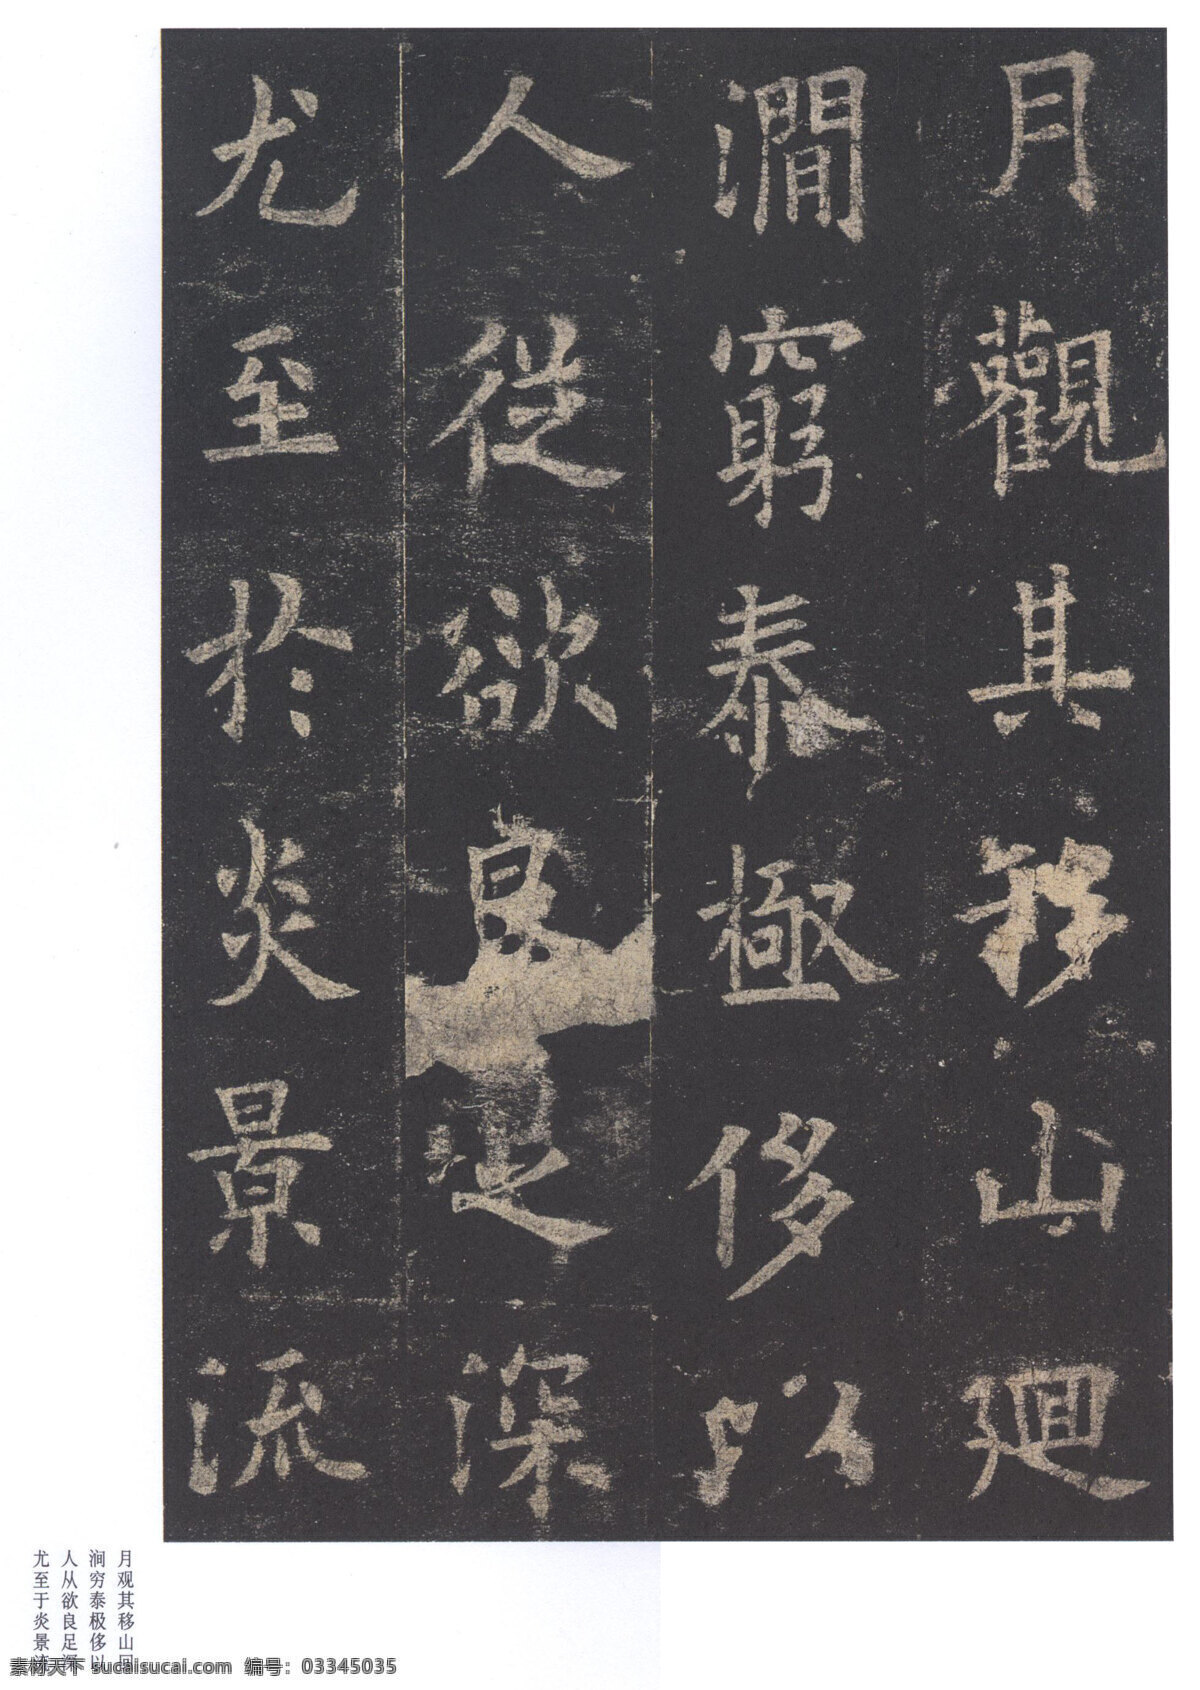 月觀其移山廻
澗窮泰極侈以
人從欲良足深
尤至於炎景流
月观其移山回
涧穷泰极侈以
人从欲良足深
尤至于炎景流
素材天下 sucaisucai.com 编号：03345035